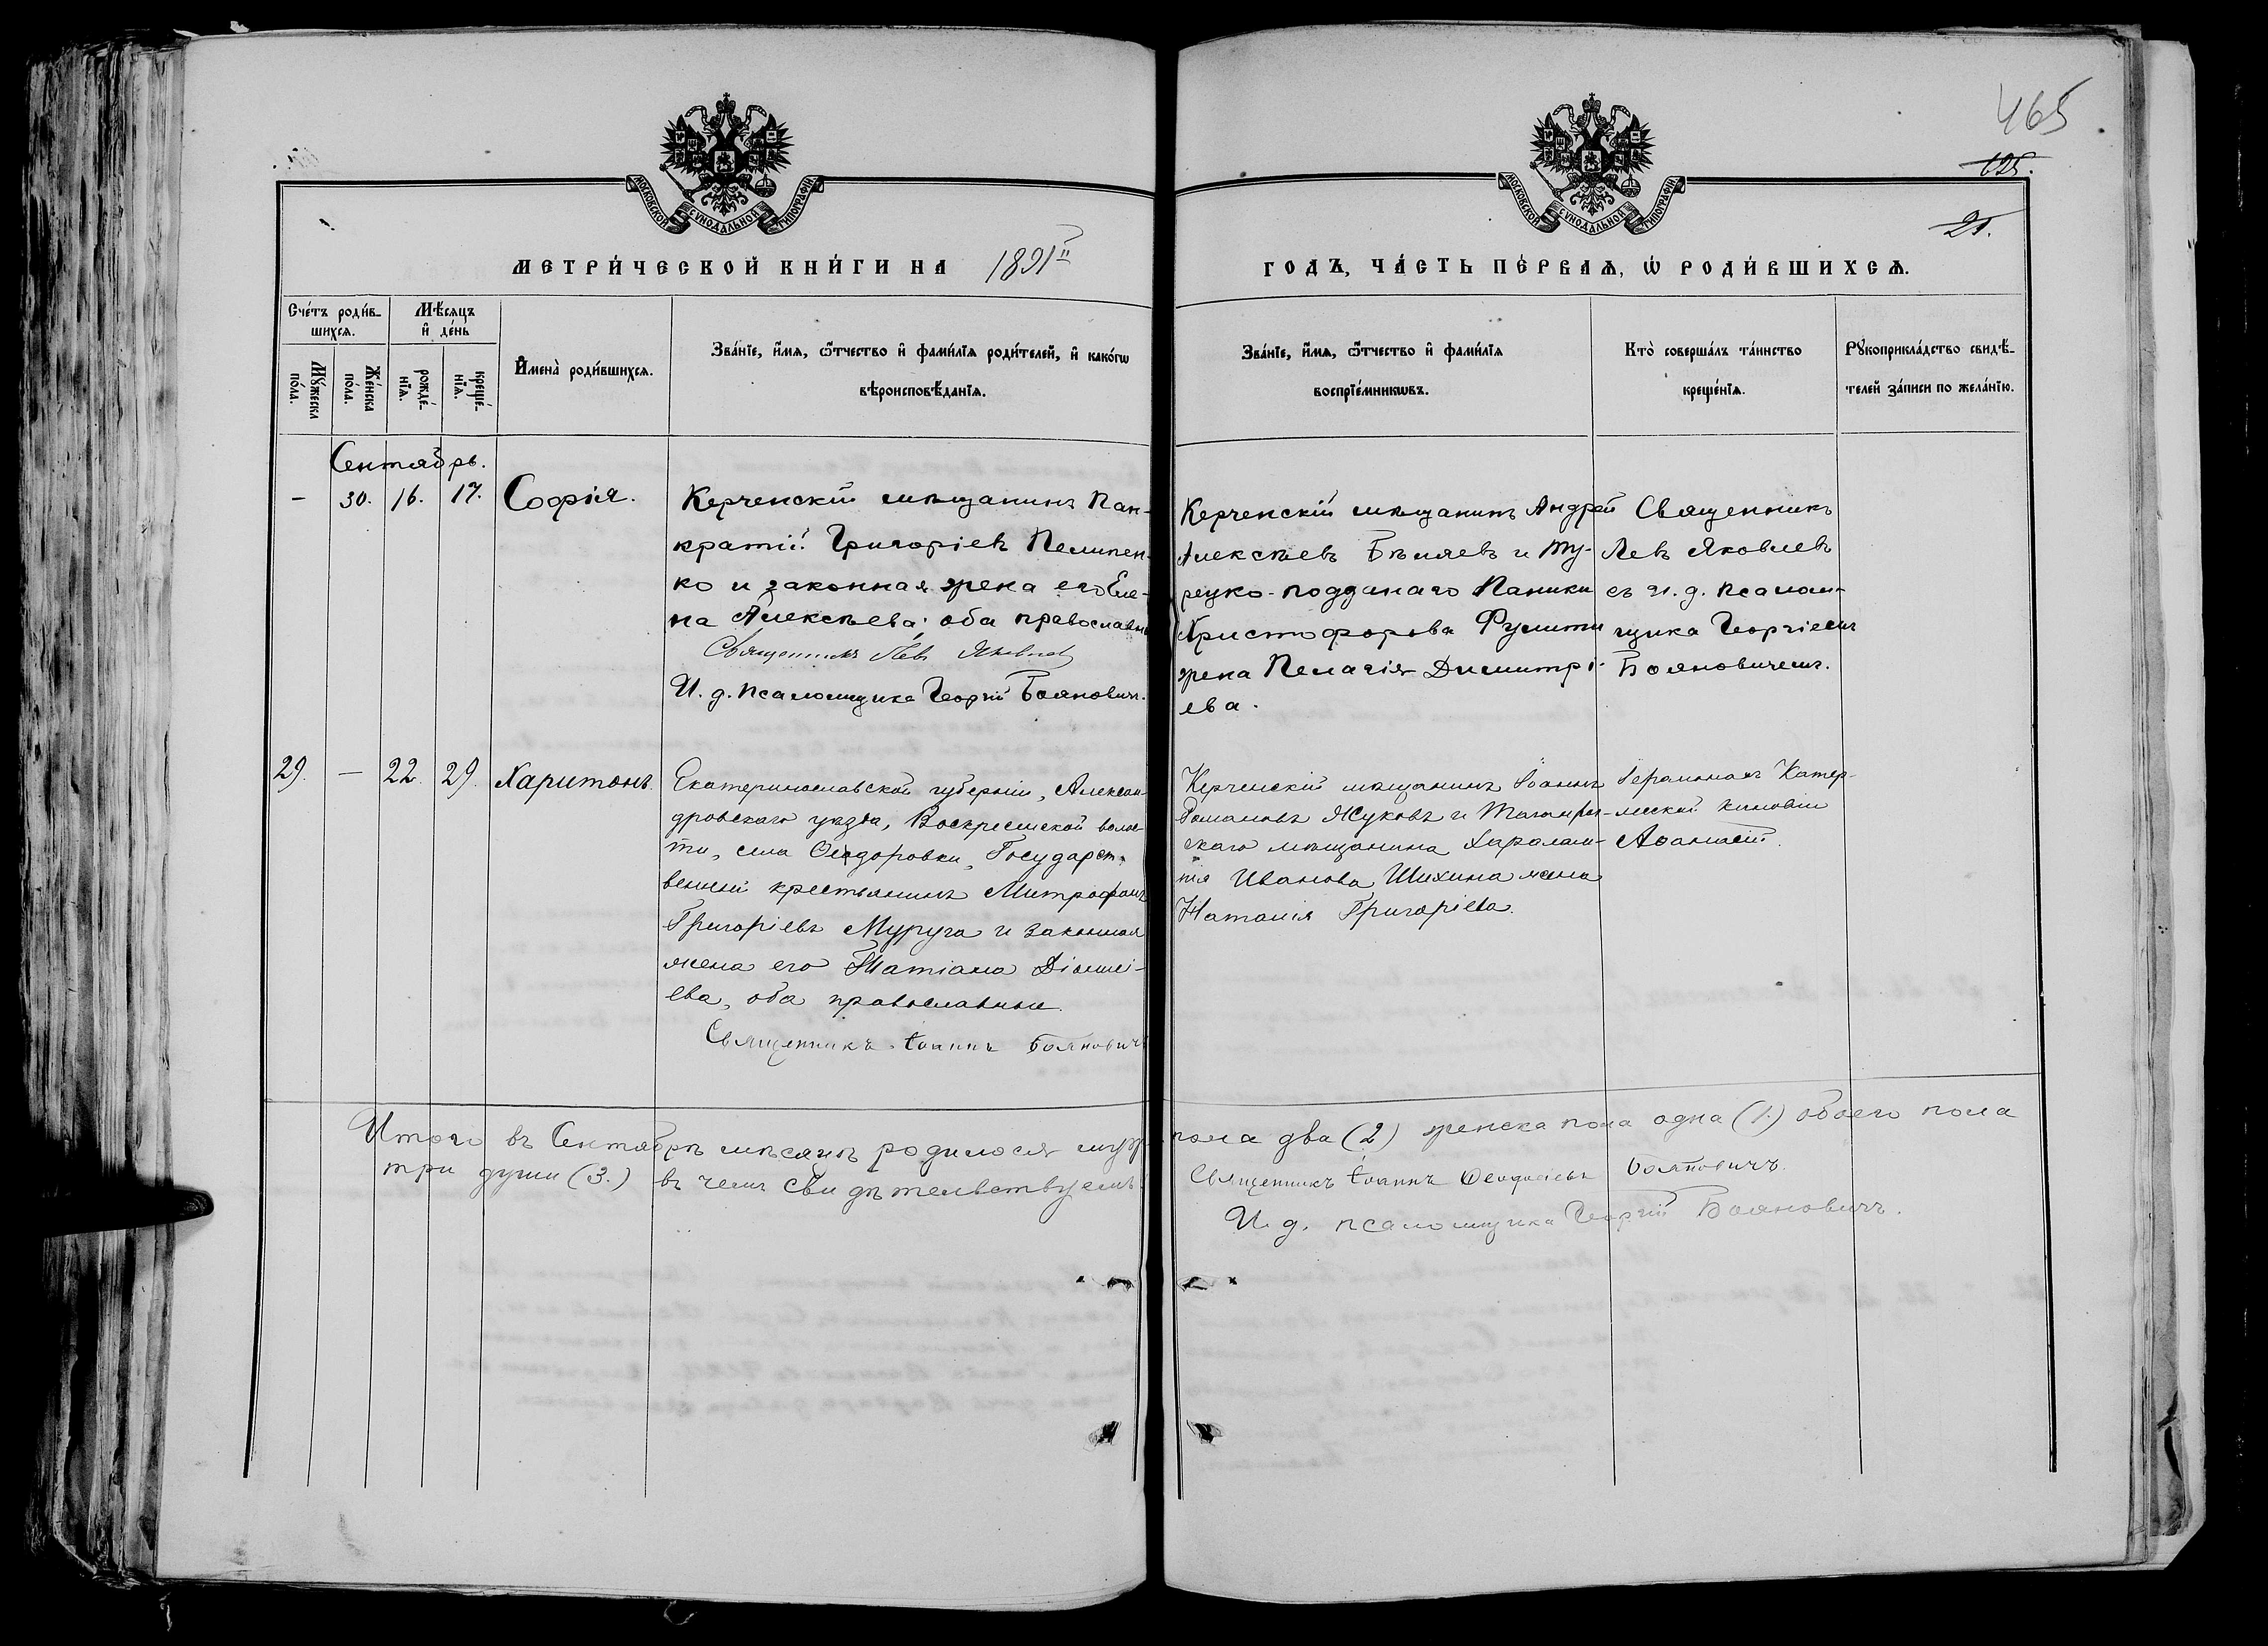 465
125.
21.
МОСКОВСКОЙ СѴНОДАЛЬНОЙ ТИПОГРАФІИ
МОСКОВСКОЙ СѴНОДАЛЬНОЙ ТИПОГРАФІИ
МЕТРИ́ЧЕСКОЙ КНИ́ГИ НА 1891й
ГОДЪ, ЧА́СТЬ ПЕ́РВАѦ, Ѡ҆ РОДИ́ВШИХСѦ.
Сче́тъ роди́в-
шихсѧ.
Мѣ́сѧцъ
и҆ де́нь
Мꙋ́жеска
по́ла.
Же́нска
по́ла.
рожде́-
нїѧ.
креще́-
нїѧ.
И҆мена̀ роди́вшихсѧ.
Зва́нїе, и҆́мѧ, ѻ҆́тчество и҆ фами́лїѧ роди́телей, и҆ како́гѡ
вѣроисповѣ́данїѧ.
Зва́нїе, и҆́мѧ, ѻ҆́тчество и҆ фами́лїѧ
воспрїе́мникѡвъ.
Кто̀ соверша́лъ та́инство
креще́нїѧ.
Рꙋкоприкла́дство свидѣ́-
телей за́писи по жела́нїю.
Сентябрь.
– 30. 16. 17. Софія.
Керченскій мѣщанинъ Пан-
кратій Григоріевъ Пелипен-
ко и законная жена его Еле-
на Алексѣева; оба православн
Священникъ Левъ Яковлевъ
И. д. псаломщика Георгій Бояновичъ.
Керченскій мѣщанинъ Андрей
Алексѣевъ Бѣляевъ и Ту-
рецко-подданаго Паники
Христофорова Фулити
жена Пелагія Димитрі-
ева.
Священникъ
Левъ Яковлевъ
съ и. д. псалом-
щика Георгіемъ
Бояновичемъ.
29. – 22. 29. Харитонъ.
Екатеринославской губерніи, Алексан-
дровскаго уѣзда, Воскресенской волос-
ти, села Ѳеодоровки, Государст-
венный крестьянинъ Митрофанъ
Григоріевъ Муруга и законная
жена его Татіана Діониſі-
ева, оба православные.
Священникъ Іоаннъ Бояновичъ
Керченскій мѣщанинъ Іоаннъ
Романовъ Жуковъ и Таганрог-
скаго мѣщанина Харалам-
пія Иванова Шихина жена
Наталія Григоріева.
Іеромонахъ Катер-
лесской киновіи
Аѳанасій.
Итого въ Сентябрѣ мѣсяцѣ родилося муж. пола два (2) женска пола одна (1.) обоего пола
три души (3.) въ чемъ свидѣтельствуемъ:
Священникъ Іоаннъ Ѳеодосіевъ Бояновичъ.
И. д. псаломщика Георгій Бояновичъ.